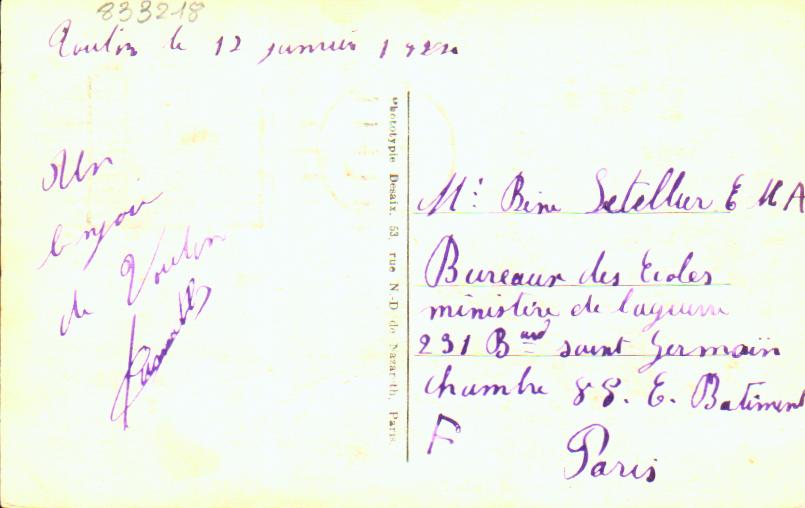 833218
Toulon le 12 janvier
Un
bonjour
de Toulon
Phototypie Desaix, 53, rue N.-D de Nazareth, Paris
Mr Letellier E M A
Bureaux des Ecoles
ministère de la guerre
231 Bard saint Germain
chambre 88. E. Batiment
F
Paris